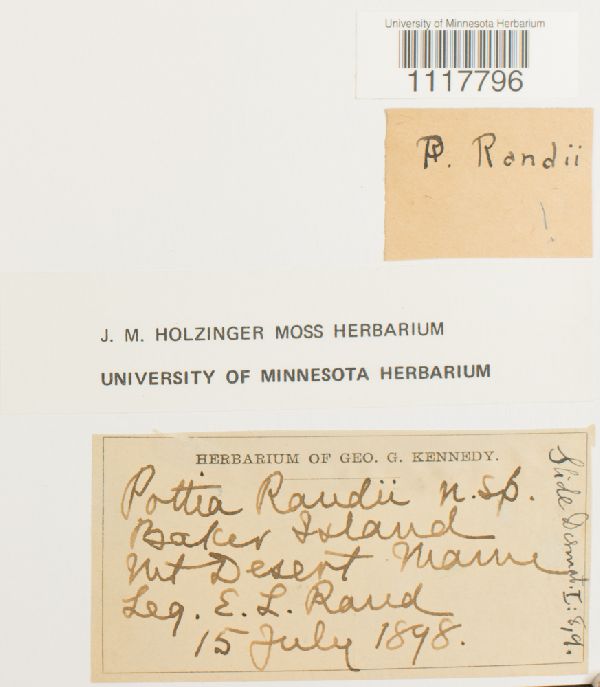 University of Minnesota Herbarium
1117796
P. Randii
J. M. HOLZINGER MOSS HERBARIUM
UNIVERSITY OF MINNESOTA HERBARIUM
HERBARIUM OF GEO. G. KENNEDY.
Pottia Randii n.sp.
Baker Island
Mt Desert Maine
Leg. E. L. Rand
15 July 1898.
Slide